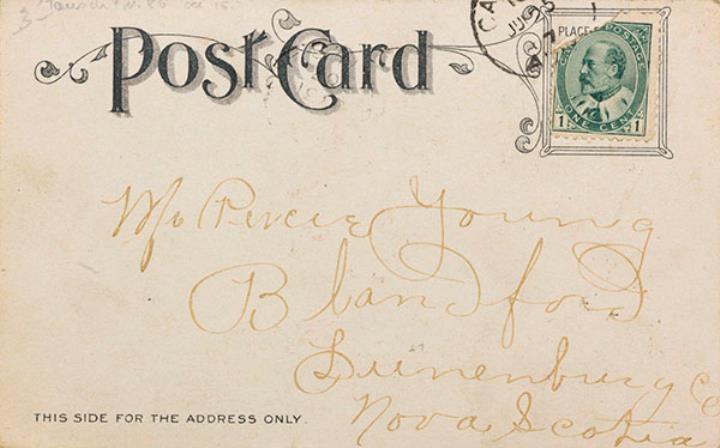 Post Card
CA
PLACE
CANADA POSTAGE
1 ONE CENT 1
Mr Percie Young
Blandford
Lunenburg Co
Nova Scotia
THIS SIDE FOR THE ADDRESS ONLY.